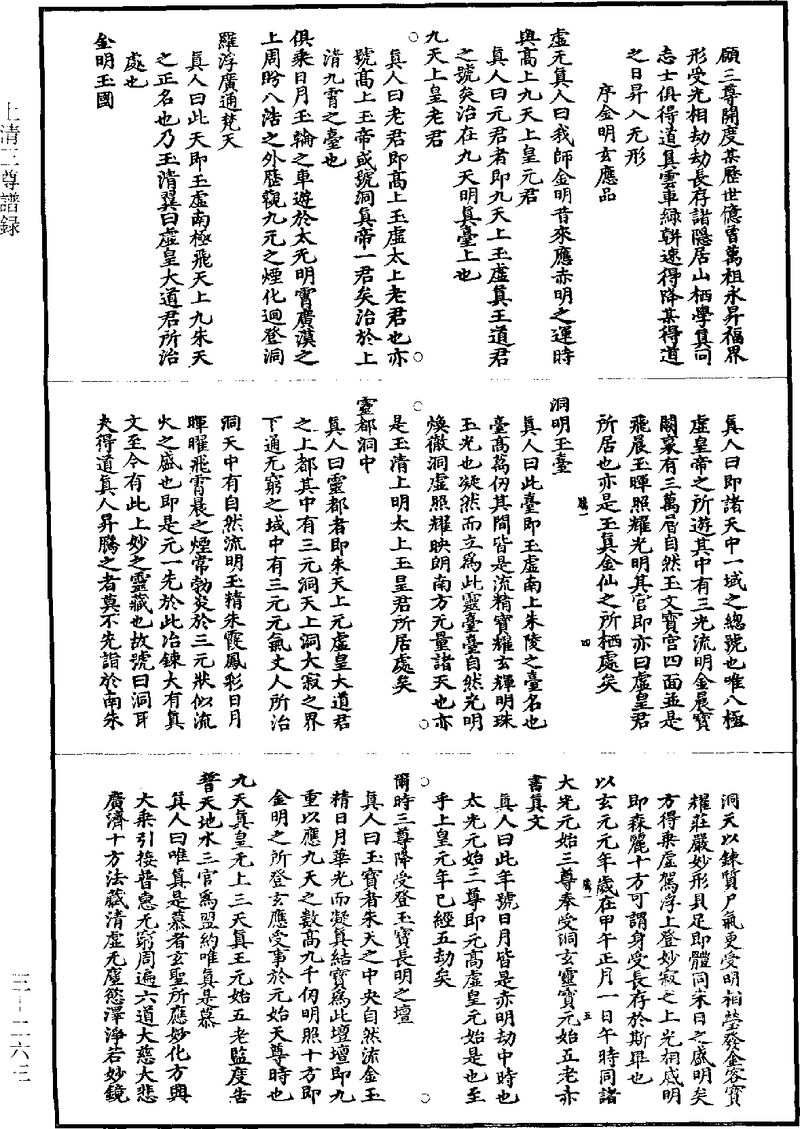 願三尊開度某歷世億曾萬祖永昇福界
形受光相劫劫長存諸隱居山栖學真同
志士俱得道真雲車綠軿速得降某得道
之日昇入无形
序金明玄應品
虛无真人曰我師金明昔來應赤明之運時
與高上九天上皇元君
真人曰元君者即九天上王虛真王道君
之號矣治在九天明真臺上也
九天上皇老君
真人曰老君即高上玉虛太上老君也亦
號高上玉帝或號洞真帝一君矣治於上
清九霄之臺也
俱乘日月玉輪之車遊於太无明霄廣漢之
上周盻八浩之外歷觀九元之煙化迴登洞
羅浮廣通梵天
真人曰此天即玉虛南極飛天上九朱天
之正名也乃玉清翼曰虛皇大道君所治
處也
金明玉國
真人曰即諸天中一域之總號也唯八極
虛皇帝之所遊其中有三光流明金晨寶
闕臺有三萬層自然玉文寶宮四面並是
飛晨玉暉照耀光明其官即亦曰虛皇君
所居也亦是玉真金仙之所栖處矣
洞明玉臺
真人曰此臺即玉虛南上朱陵之臺名也
臺高萬仞其間皆是流精寶耀玄輝明珠
玉光也凝然而立為此靈臺臺自然光明
煥徹洞虛照耀映朗南方无量諸天也亦
是玉清上明太上玉皇君所居處矣
靈都洞中
真人曰靈都者即朱天上元虛皇大道君
之上都其中有三元洞天上洞大寂之界
下通无窮之域中有三元元氣丈人所治
洞天中有自然流明玉精朱霞鳳彩日月
暉曜飛霄晨之煙常勃炎於三元狀似流
火之盛也即是元一先於此冶鍊大有真
文至今有此上妙之靈藏也故號曰洞耳
夫得道真人昇騰之者莫不先詣於南朱
洞天以鍊質尸氣更受明相瑩發金容寶
耀莊嚴妙形具足即體同宋日之盛明矣
方得乘虛駕浮上登妙寂之上光相盛明
即森麗十方可謂身受長存於斯畢也
以玄元元年歲在甲午正月一日午時同諸
大光元始三尊奉受洞玄靈寶元始五老赤
書真文
真人曰此年號日月皆是赤明劫中時也
太光元始三尊即元高虛皇元始是也至
乎上皇元年已經五劫矣
爾時三尊降受登玉寶長明之壇
真人曰玉寶者朱天之中央自然流金玉
精日月華光而凝真結寶為此壇壇即九
重以應九天之數高九千仞明照十方即
金明之所登玄應受事於元始天尊時也
九天真皇无上三天真王元始五老監度告
普天地水三官為盟約唯真是慕
真人曰唯真是慕者玄聖所應妙化方興
大乘引接普惠无窮周遍六道大慈大悲
廣濟十方法藏清虛无塵慾澤淨若妙鏡
上清三尊譜録
三-二六三